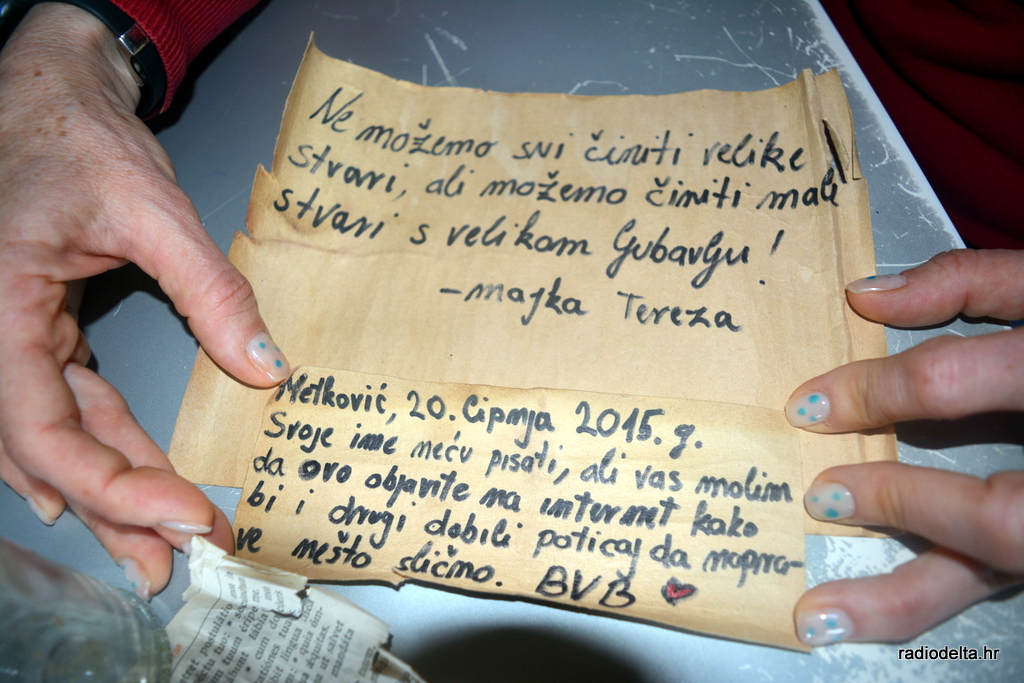 Ne možemo svi činiti velike
stvari, ali možemo činiti male
stvari s velikom ljubavlju!
-majka Tereza
Metković, 20. lipnja 2015. g.
Svoje ime neću pisati, ali vas molim
da ovo objavite na internet kako
bi i drugi dobili poticaj da napra-
ve nešto slično. BVB
radiodelta.hr